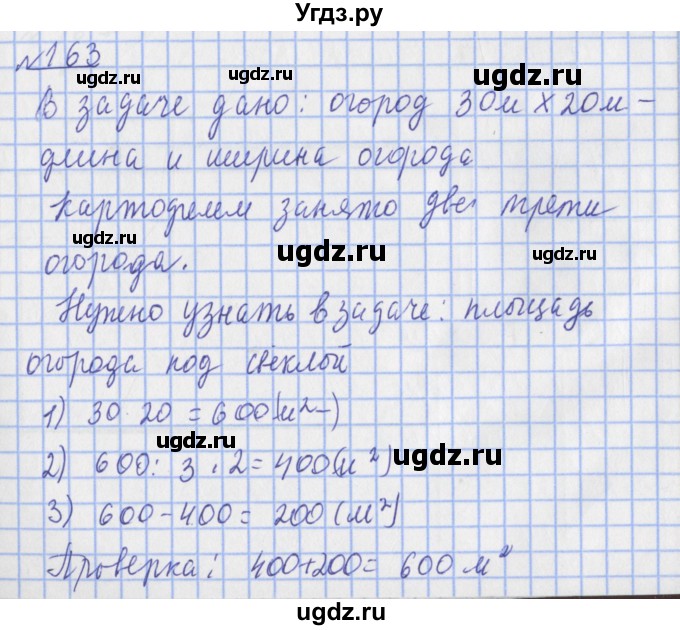 Угдз.ру
№163
ugdz.ru
ugdz.ru
В задаче дано: огород 30м × 20м -
ugdz.ru
ugdz.ru
длина и ширина огорода
картофелем занято две трети
ugdz.ru
ugdz.ru
ugdz.ru
огорода.
Нужно узнать в задаче: площадь
огорода под свеклый
ugdz.ru
ugdz.ru
1) 30 · 20 = 600 (м²-)
ugdz.ru
2) 600 : 3 · 2 = 400 (м²)
ugdz.ru
3) 600 - 400 = 200 (м²)
Проверка: 400+200 = 600 м²
ugdz.ru
ugdz.ru
ugdz.ru